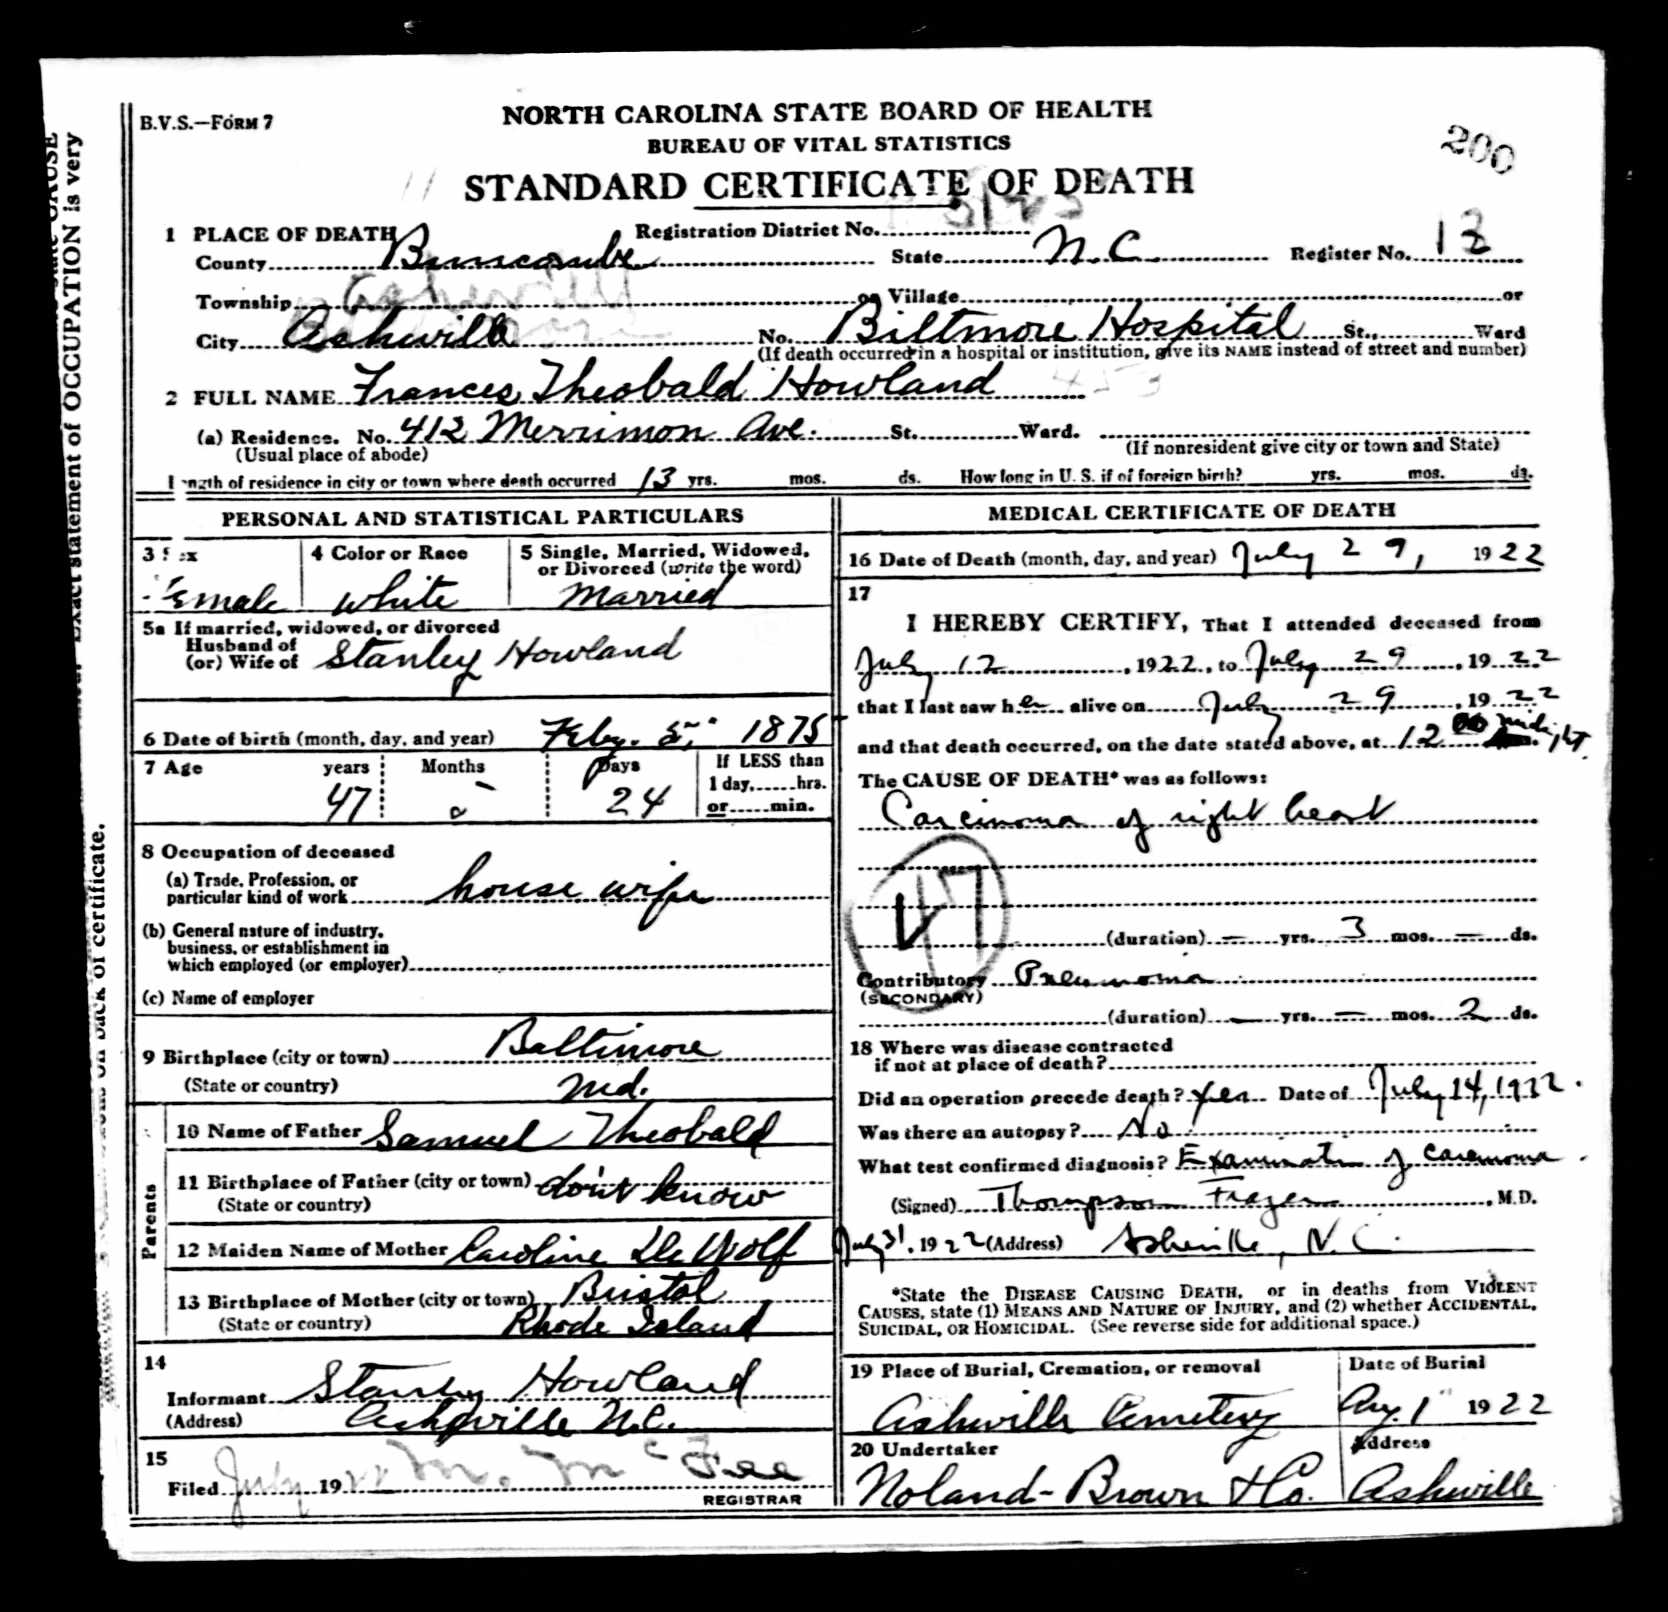 B.V.S.—FORM 7
NORTH CAROLINA STATE BOARD OF HEALTH
BUREAU OF VITAL STATISTICS
200
11 STANDARD CERTIFICATE OF DEATH
1 PLACE OF DEATH Registration District No.
County Buncombe State N.C. Register No. 13
Township Asheville or Village or
City Ashville No. Biltmore Hospital St., Ward
(If death occurred in a hospital or institution, give its NAME instead of street and number)
2 FULL NAME Frances Theobald Howland 453
(a) Residence. No. 412 Merrimon Ave. St. Ward.
(Usual place of abode) (If nonresident give city or town and State)
Length of residence in city or town where death occurred 13 yrs. mos. ds. How long in U. S. if of foreign birth? yrs. mos. ds.
PERSONAL AND STATISTICAL PARTICULARS
3 Sex 4 Color or Race 5 Single, Married, Widowed,
or Divorced (write the word)
Female white Married
5a If married, widowed, or divorced
Husband of
(or) Wife of Stanley Howland
6 Date of birth (month, day, and year) Feby. 5, 1875
7 Age years Months Days If LESS than
1 day, hrs.
47 5 24 or min.
8 Occupation of deceased
(a) Trade, Profession, or
particular kind of work house wife
(b) General nature of industry,
business, or establishment in
which employed (or employer)
(c) Name of employer
9 Birthplace (city or town) Baltimore
(State or country) Md.
Parents
10 Name of Father Samuel Theobald
11 Birthplace of Father (city or town) don't know
(State or country)
12 Maiden Name of Mother Caroline De Wolf
13 Birthplace of Mother (city or town) Bristol
(State or country) Rhode Island
14
Informant Stanley Howland
(Address) Ashville N.C.
15
Filed July 1922 M. McFee
REGISTRAR
MEDICAL CERTIFICATE OF DEATH
16 Date of Death (month, day, and year) July 29, 1922
17
I HEREBY CERTIFY, That I attended deceased from
July 12, 1922, to July 29, 1922
that I last saw her alive on July 29, 1922
and that death occurred, on the date stated above, at 12 midnight.
The CAUSE OF DEATH* was as follows:
Carcinoma of right
47
(duration) — yrs. 3 mos. — ds.
Contributory Pneumonia
(SECONDARY)
(duration) — yrs. — mos. 2 ds.
18 Where was disease contracted
if not at place of death?
Did an operation precede death? Yes Date of July 14, 1922.
Was there an autopsy? No
What test confirmed diagnosis? Examination of carcinoma.
(Signed) Thompson Frazer, M.D.
July 31, 1922 (Address) Asheville, N.C.
*State the DISEASE CAUSING DEATH, or in deaths from VIOLENT
CAUSES, state (1) MEANS AND NATURE OF INJURY, and (2) whether ACCIDENTAL,
SUICIDAL, OR HOMICIDAL. (See reverse side for additional space.)
19 Place of Burial, Cremation, or removal Date of Burial
Ashville Cemetery Aug. 1 1922
20 Undertaker Address
Noland-Brown & Co. Ashville
Exact statement of OCCUPATION is very
back of certificate.